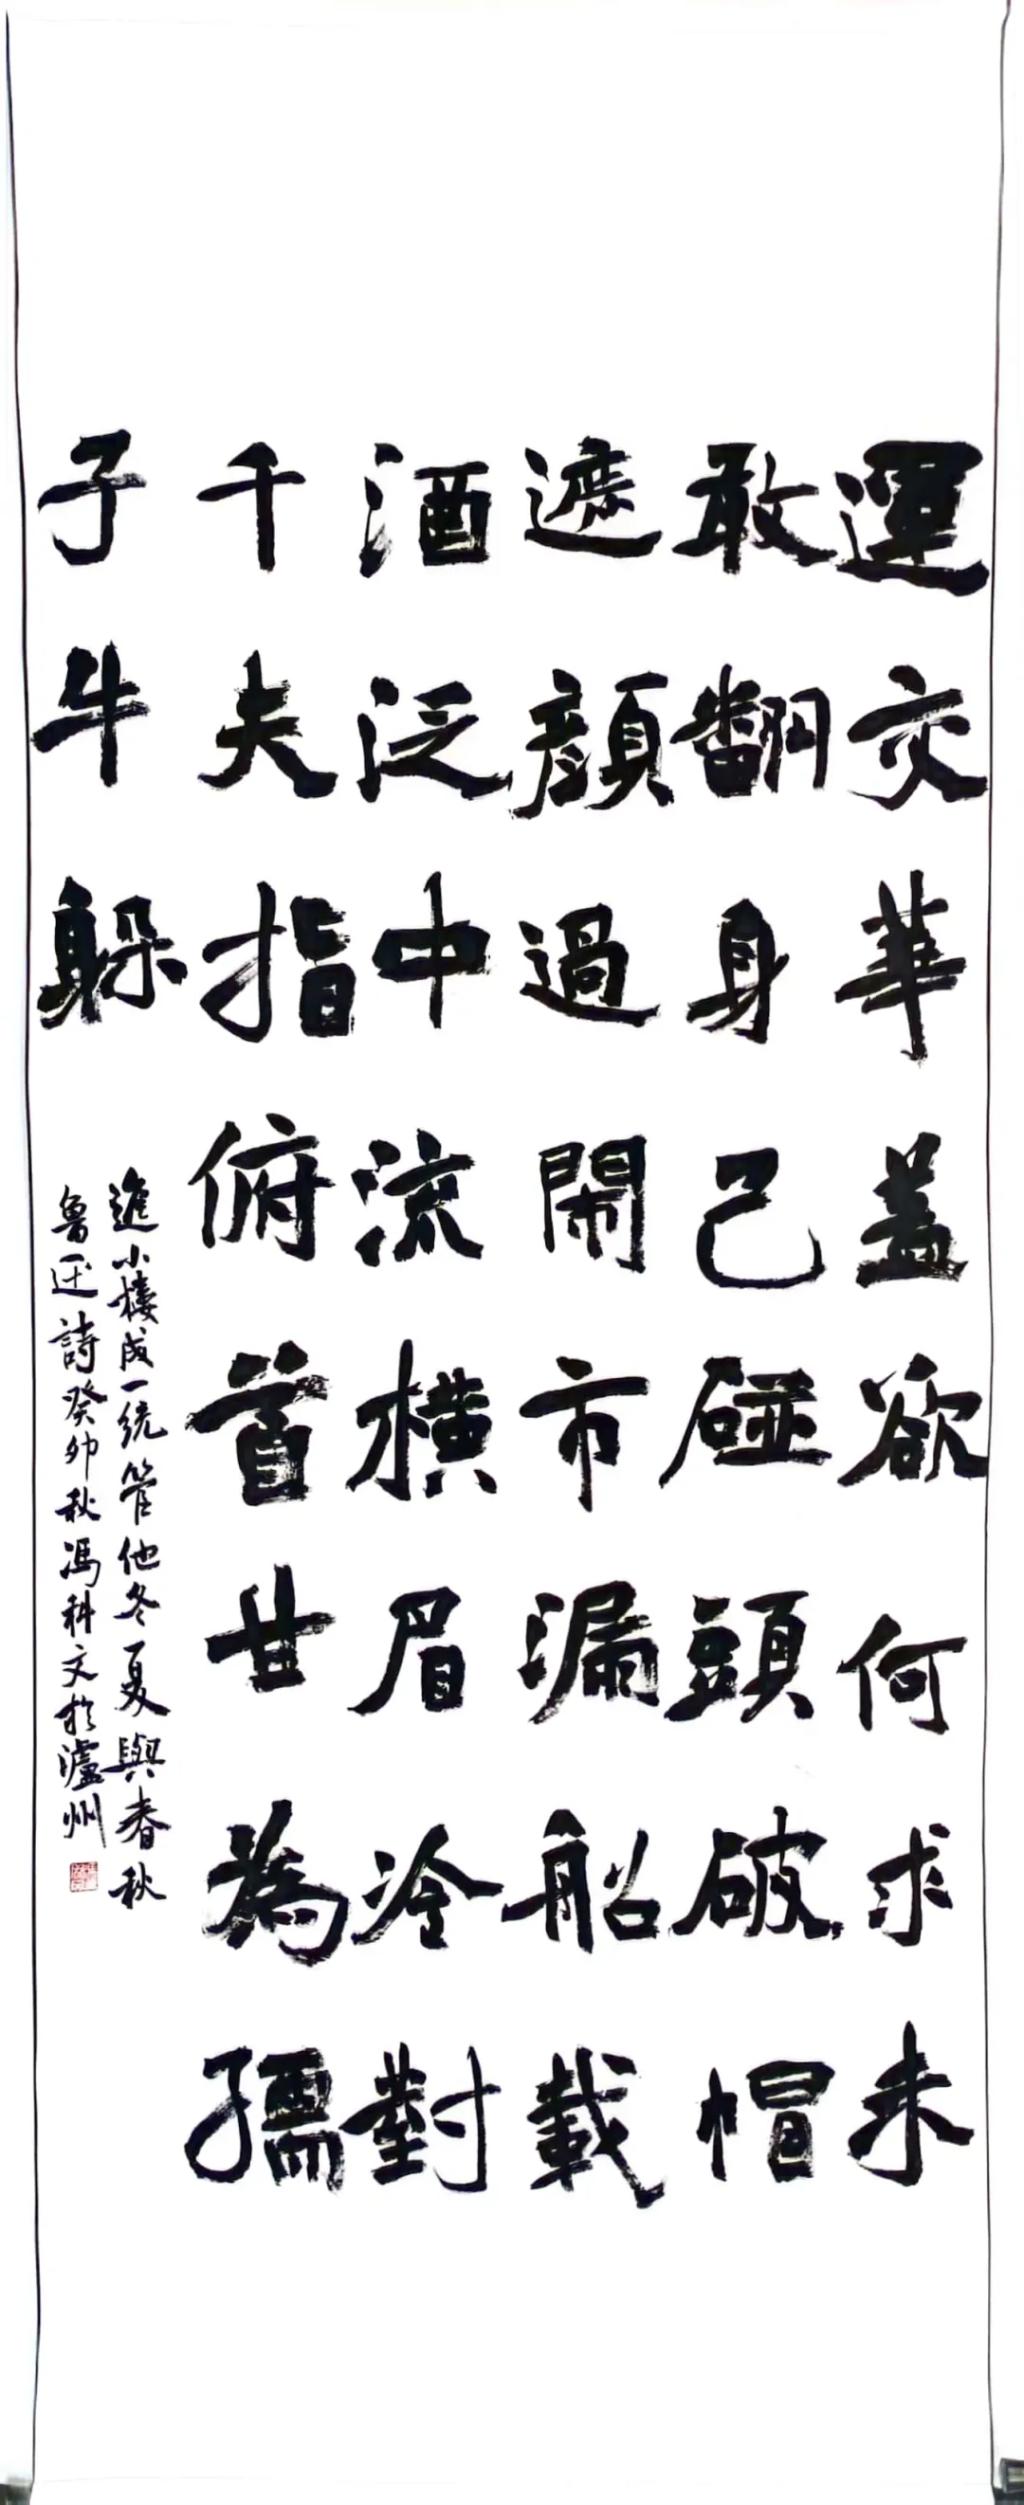 運交華蓋欲何求未
敢翻身己碰頭破帽
遮顏過鬧市漏船載
酒泛中流橫眉冷對
千夫指俯首甘為孺
子牛躲
進小樓成一统管他冬夏與春秋
魯迅詩癸卯秋馮科文於瀘州